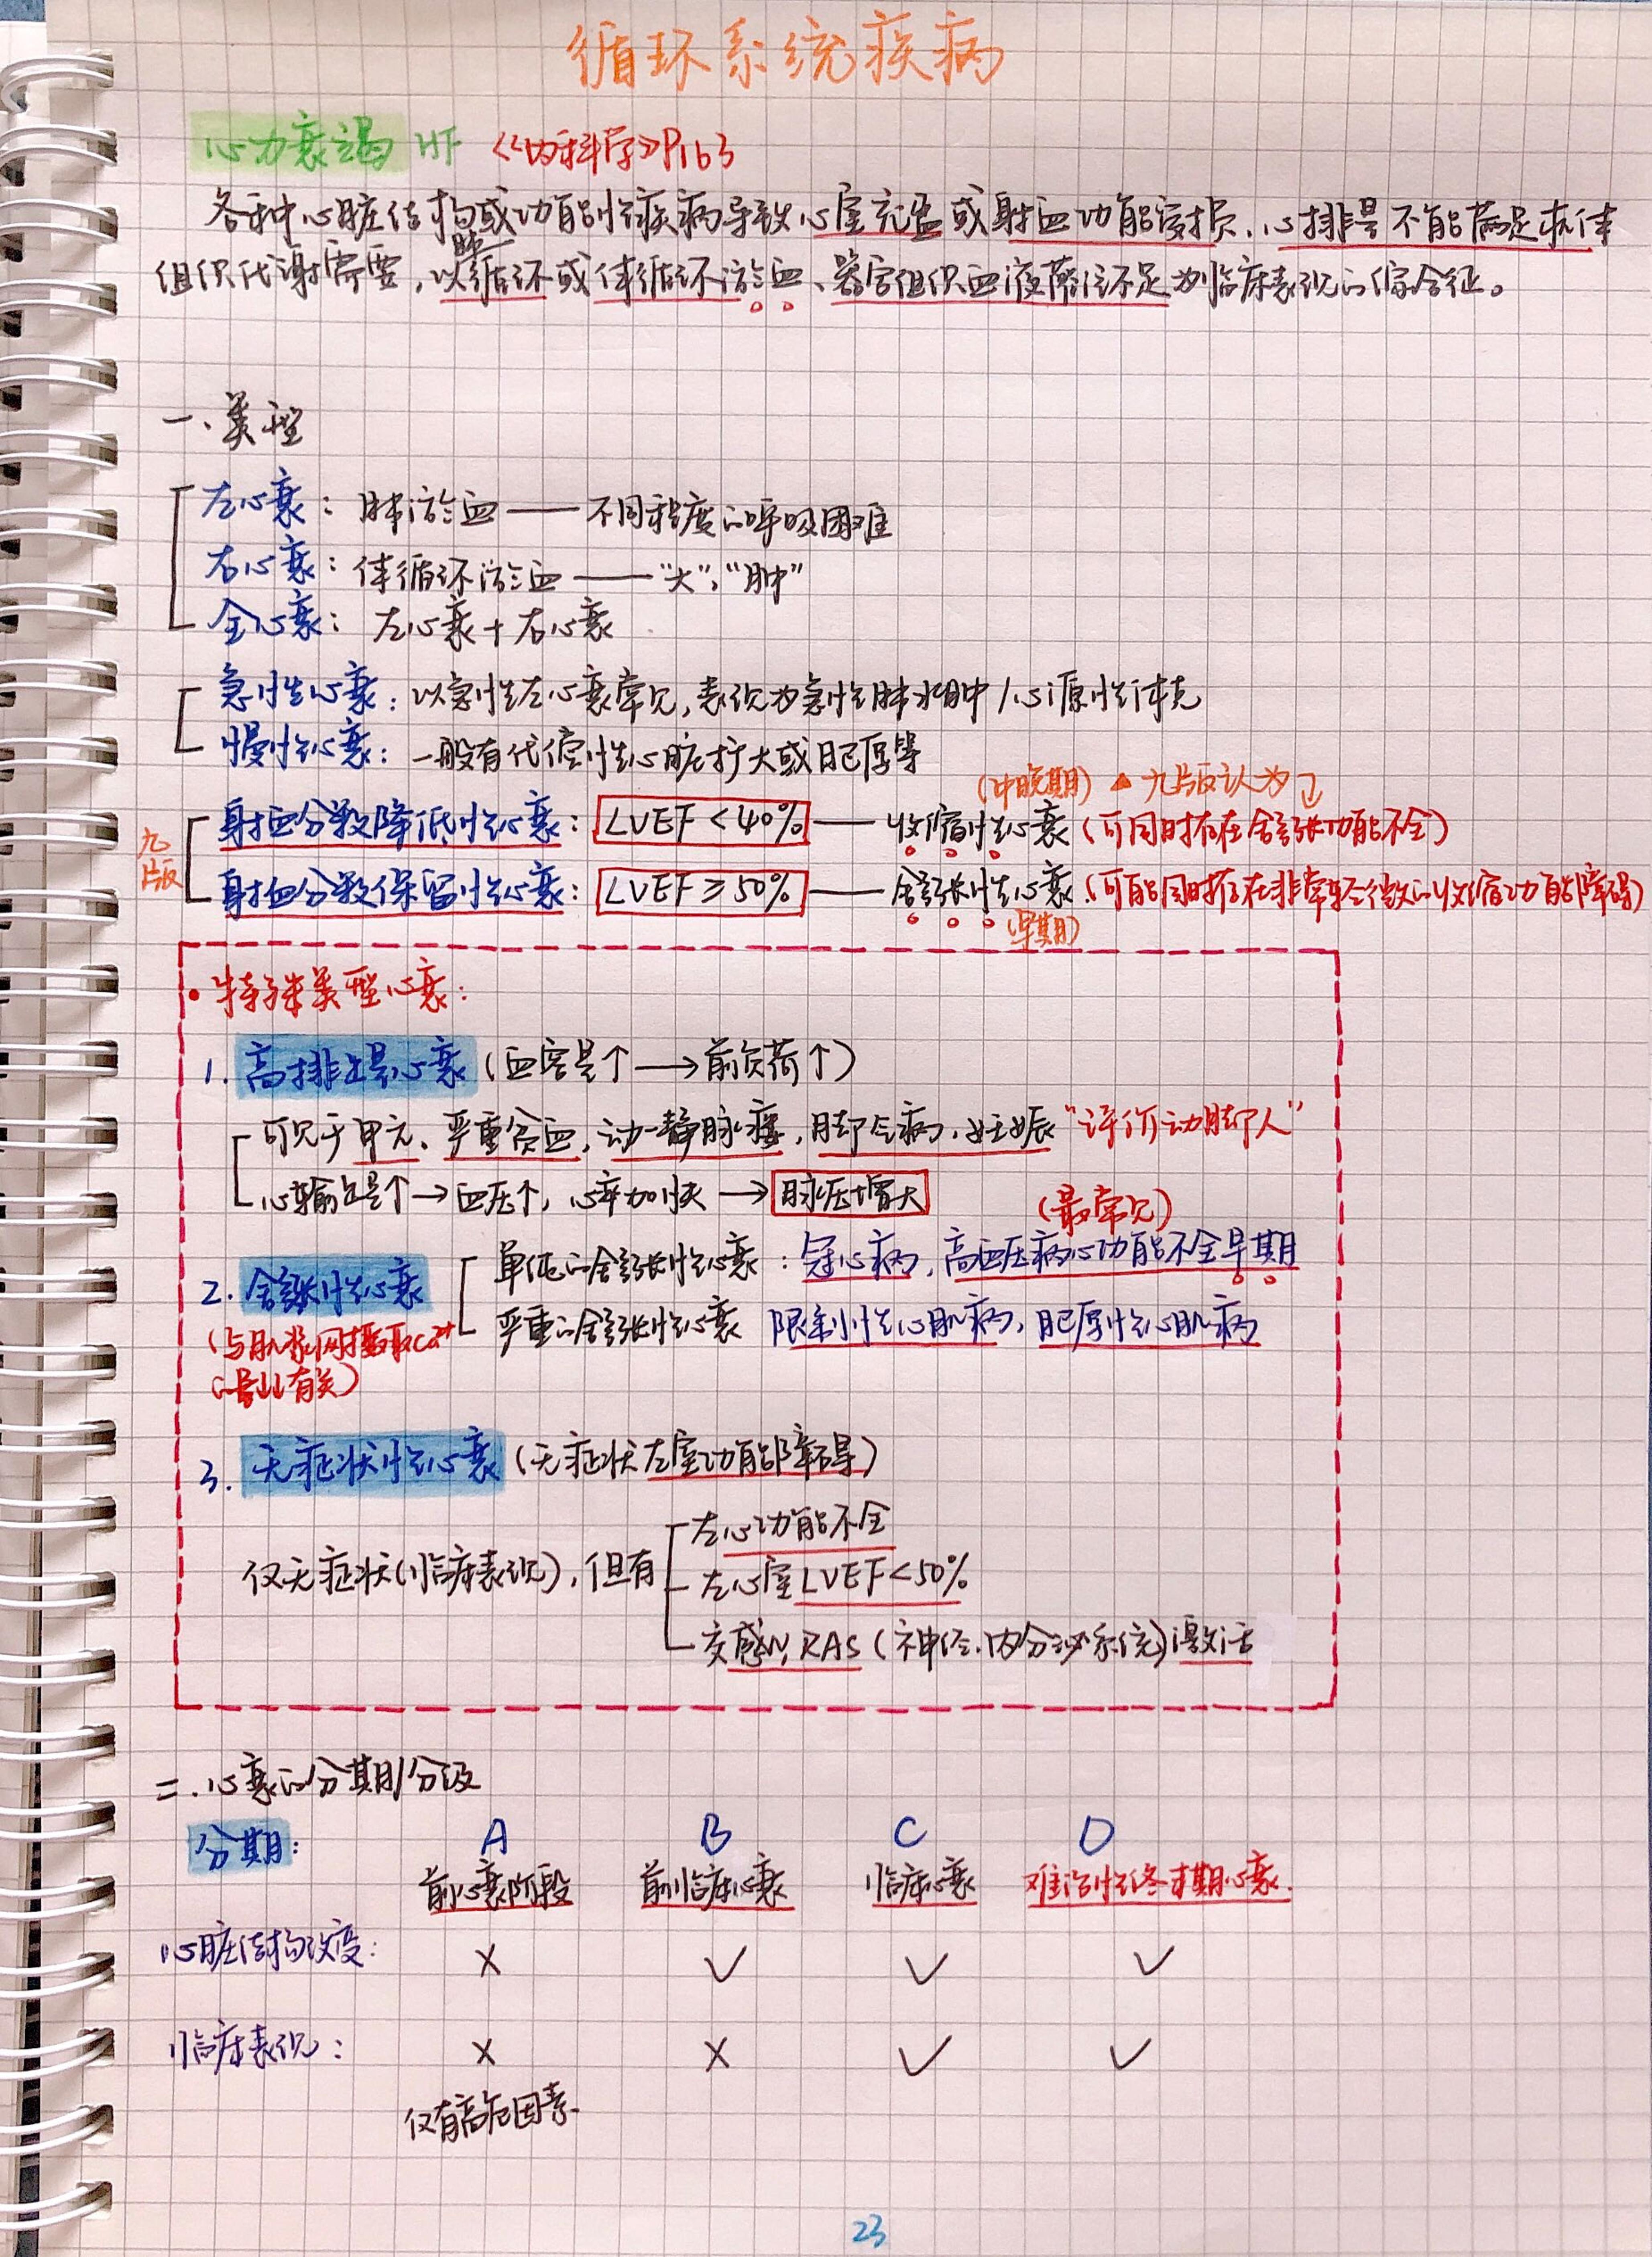 循环系统疾病
心力衰竭 HF 《内科学》P163
各种心脏结构或功能性疾病导致心室充盈或射血功能受损,心排量不能满足机体
组织代谢需要,以肺循环或体循环淤血、器官组织血液灌注不足为临床表现的综合征。
一、类型
左心衰:肺淤血——不同程度的呼吸困难
右心衰:体循环淤血——"大","肿"
全心衰:左心衰+右心衰
急性心衰:以急性左心衰常见,表现为急性肺水肿/心源性休克
慢性心衰:一般有代偿性心脏扩大或肥厚等
(中晚期) ▲九版认为
九版
射血分数降低性心衰:LVEF<40%——收缩性心衰(可同时存在舒张功能不全)
射血分数保留性心衰:LVEF≥50%——舒张性心衰(可能同时存在非常轻微的收缩功能障碍)
(早期)
·特殊类型心衰:
1. 高排出量心衰(血容量↑→前负荷↑)
可见于甲亢、严重贫血,动-静脉瘘,脚气病,妊娠"评价动脚人"
心输出量↑→血压↑,心率加快→脉压增大
(最常见)
2. 舒张性心衰 单纯的舒张性心衰:冠心病,高血压病心功能不全早期
严重的舒张性心衰 限制性心肌病,肥厚性心肌病
(与肌浆网摄取Ca²⁺
的量↓有关)
3. 无症状性心衰(无症状左室功能障碍)
仅无症状(临床表现),但有
左心功能不全
左心室LVEF<50%
交感N,RAS(神经.内分泌系统)激活
二.心衰的分期/分级
分期: A B C D
前心衰阶段 前临床心衰 临床心衰 难治性终末期心衰.
心脏结构改变: × ✓ ✓ ✓
临床表现: × × ✓ ✓
仅有高危因素.
23